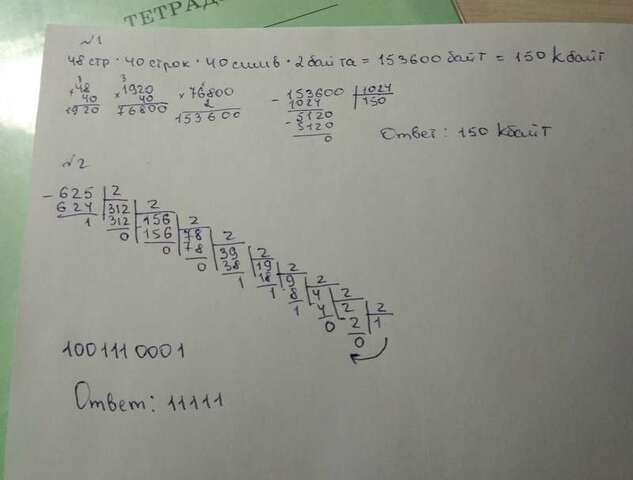 ТЕТРАД
№1
48 стр · 40 строк · 40 симв · 2 байта = 153600 байт = 150 Кбайт
×48 ×1920 ×76800 - 153600 | 1024
40 40 2 1024 150
1920 76800 153600 - 5120
5120
0
Ответ: 150 Кбайт
№2
- 625 | 2
624 312 | 2
1 312 156 | 2
0 156 78 | 2
0 78 39 | 2
0 38 19 | 2
1 18 9 | 2
1 8 4 | 2
1 4 2 | 2
0 2 1
0
1001110001
Ответ: 11111